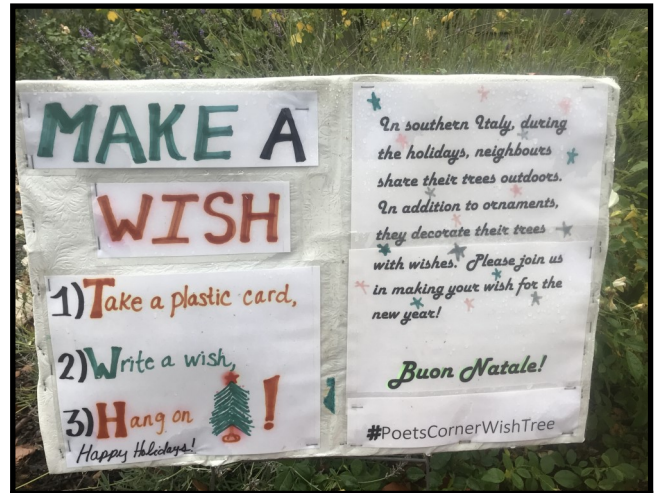 MAKE A
WISH
1) Take a plastic card,
2) Write a wish,
3) Hang on !
Happy Holidays!
In southern Italy, during
the holidays, neighbours
share their trees outdoors.
In addition to ornaments,
they decorate their trees
with wishes. Please join us
in making your wish for the
new year!
Buon Natale!
#PoetsCornerWishTree